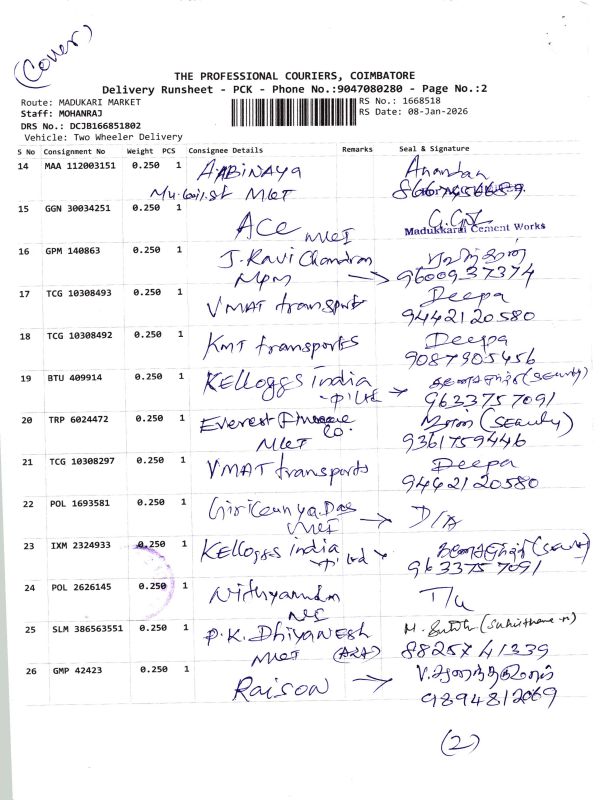 (Cover)
THE PROFESSIONAL COURIERS, COIMBATORE
Delivery Runsheet - PCK - Phone No.:9047080280 - Page No.:2
Route: MADUKARI MARKET
RS No.: 1668518
Staff: MOHANRAJ
RS Date: 08-Jan-2026
DRS No.: DCJB166851802
Vehicle: Two Wheeler Delivery
S No Consignment No Weight PCS Consignee Details Remarks Seal & Signature
14 MAA 112003151 0.250 1 AABINAYA Anandan
MKT
15 GGN 30034251 0.250 1 ACC
MKT Madukkarai Cement Works
16 GPM 140863 0.250 1 J. Ravi Chandran
Mpm → 9600937374
17 TCG 10308493 0.250 1 VMAT transports Deepa
9442120580
18 TCG 10308492 0.250 1 KMT transports Deepa
9087905456
19 BTU 409914 0.250 1 KELLOGGS india (Security)
Pvt Ltd → 9633757091
20 TRP 6024472 0.250 1 Everest Finance (Security)
MKT Co. 9361759446
21 TCG 10308297 0.250 1 VMAT transports Deepa
9442120580
22 POL 1693581 0.250 1
MKT → D/A
23 IXM 2324933 0.250 1 KELLOGGS india
Pvt Ltd 9633757091
24 POL 2626145 0.250 1
25 SLM 386563551 0.250 1 P.K. DHIYANESH
MKT 8825741339
26 GMP 42423 0.250 1 Raison →
9894812069
(2)